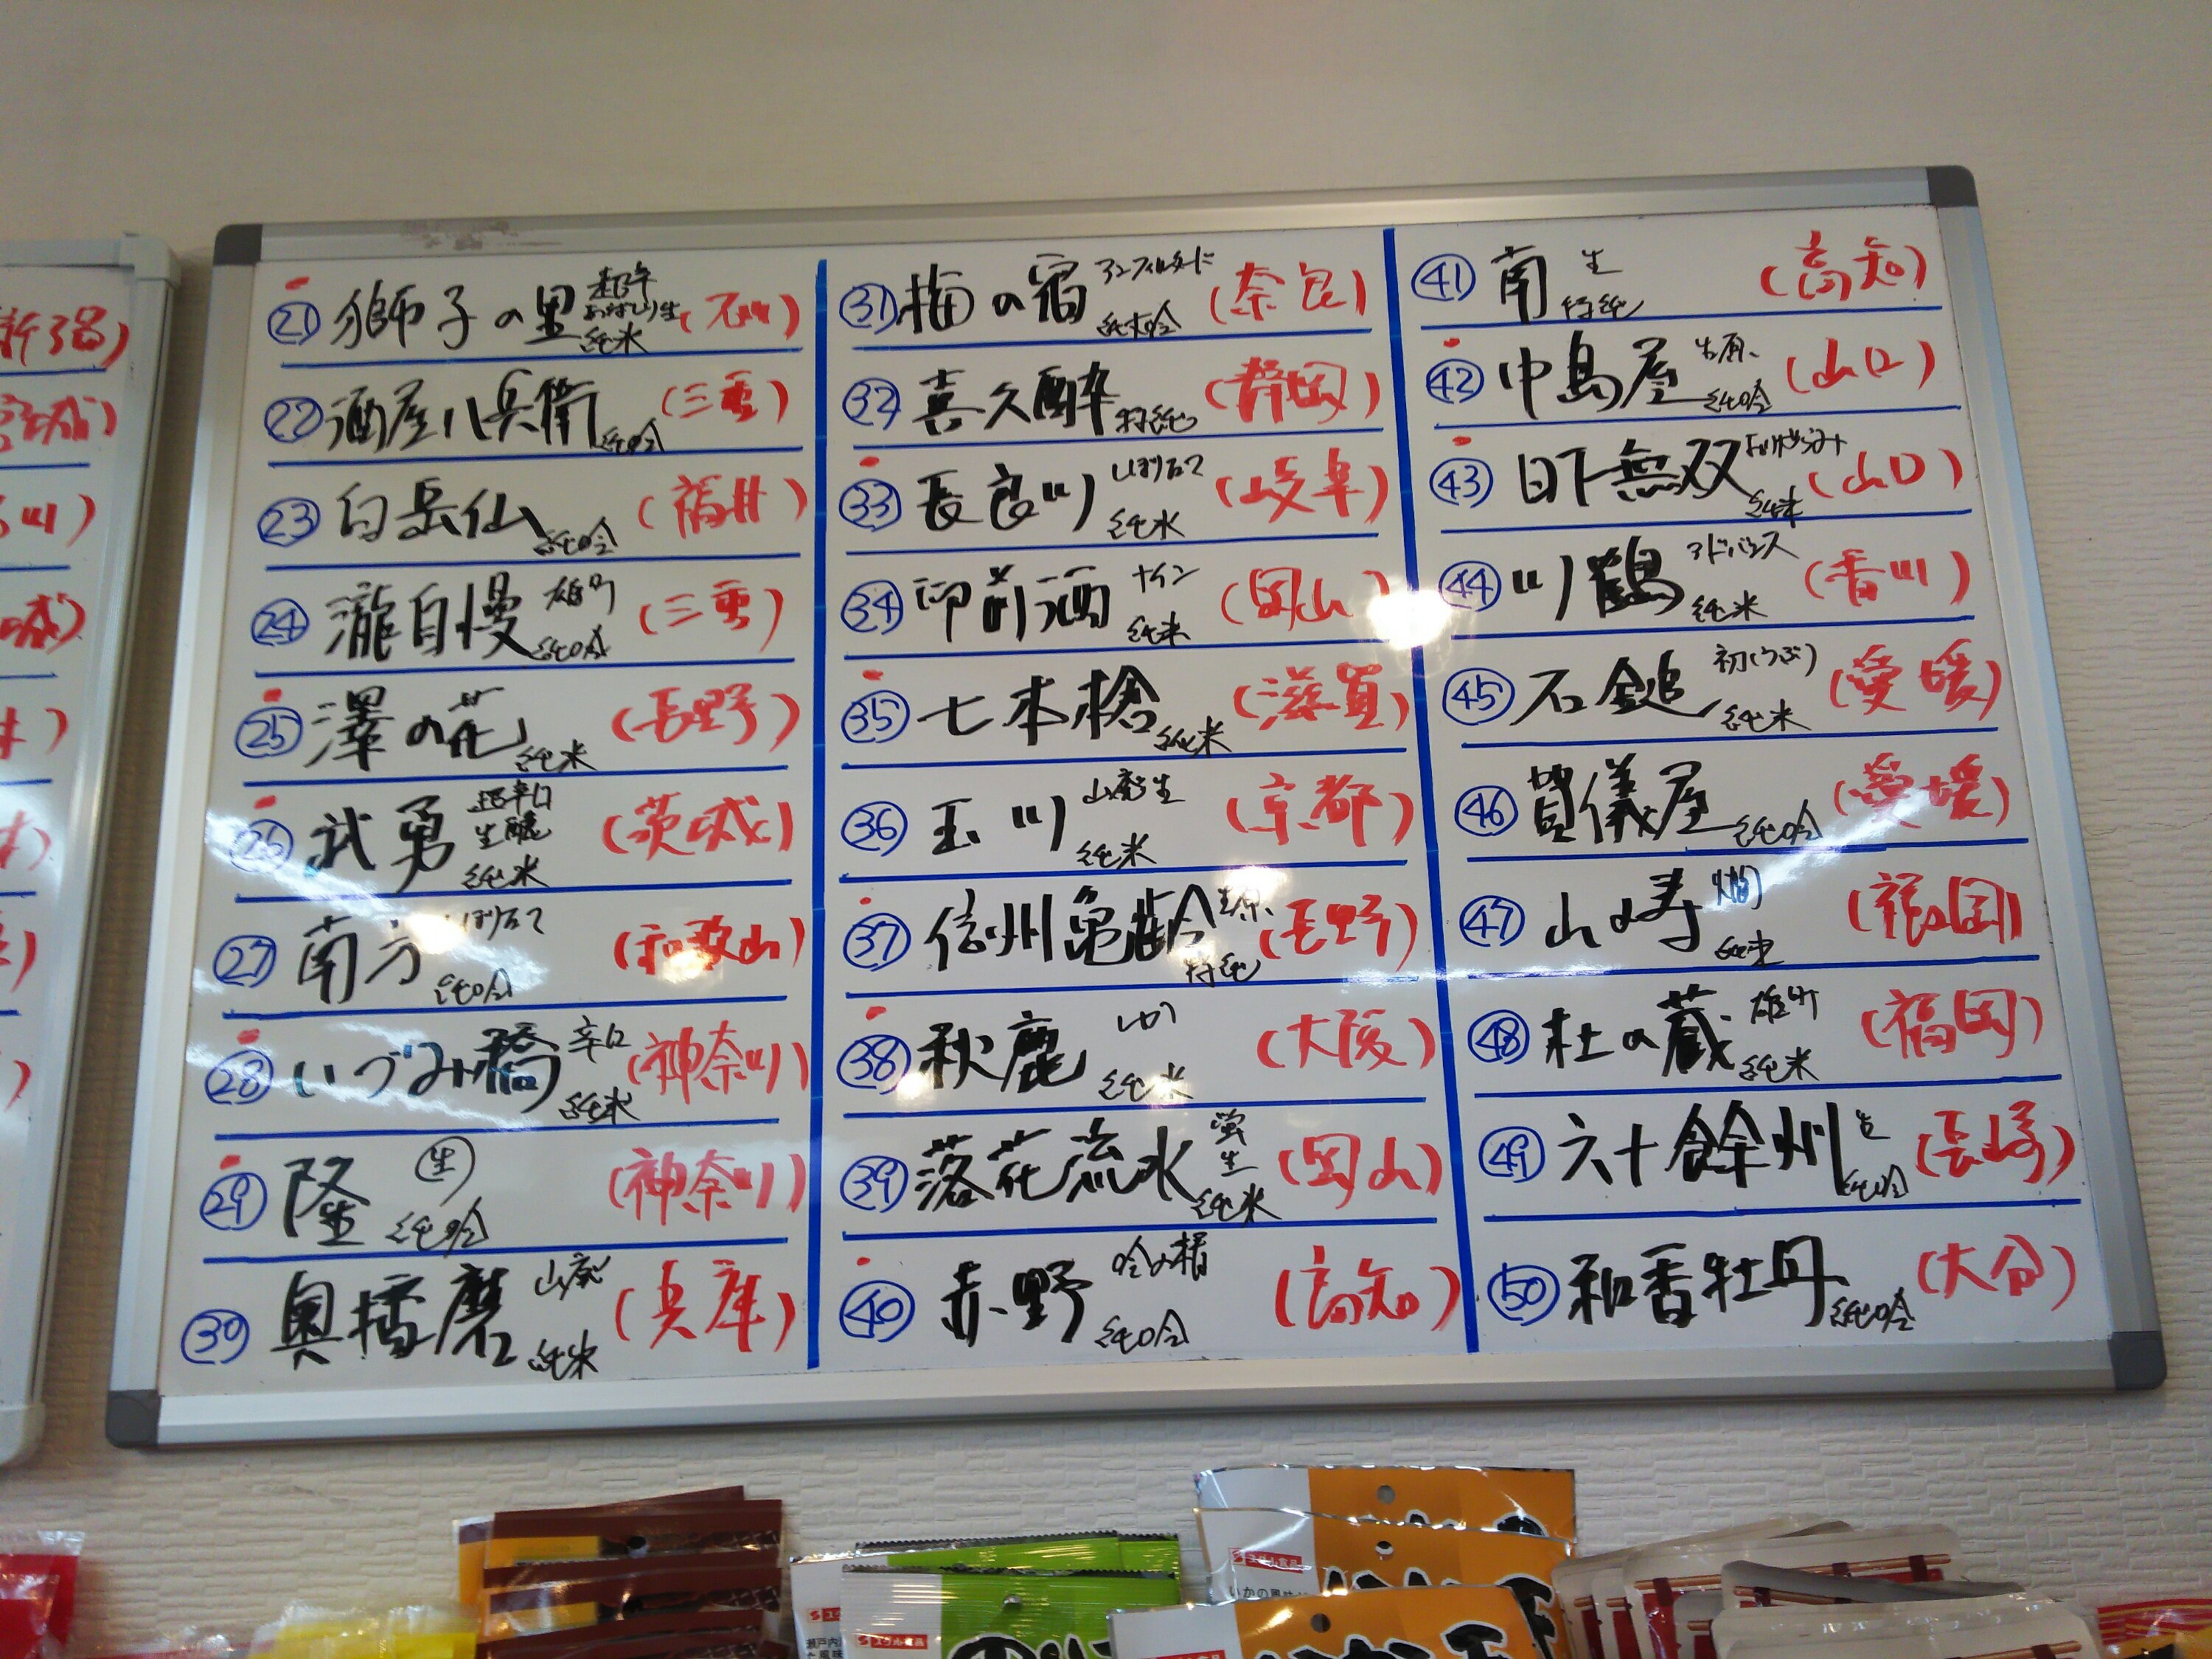 ㉑ 獅子の里 超辛 純米 (石川)
㉒ 酒屋八兵衛 純吟 (三重)
㉓ 白岳仙 純吟 (福井)
㉔ 瀧自慢 雄町 純吟 (三重)
㉕ 澤の花 純米 (長野)
㉖ 武勇 超辛口 生酛 純米 (茨城)
㉗ 南方 しぼりたて 純吟 (和歌山)
㉘ いづみ橋 辛口 純米 (神奈川)
㉙ 隆 生 純吟 (神奈川)
㉚ 奥播磨 山廃 純米 (兵庫)
㉛ 梅の宿 アンフィルタード 純米吟 (奈良)
㉜ 喜久酔 特純 (静岡)
㉝ 長良川 しぼりたて 純米 (岐阜)
㉞ 御前酒 ナイン 純米 (岡山)
㉟ 七本槍 純米 (滋賀)
㊱ 玉川 山廃生 純米 (京都)
㊲ 信州亀齢 生原、 特純 (長野)
㊳ 秋鹿 純米 (大阪)
㊴ 落花流水 蛍 生 純米 (岡山)
㊵ 赤野 吟の夢 純吟 (高知)
㊶ 南 生 特純 (高知)
㊷ 中島屋 生原、 純吟 (山口)
㊸ 日下無双 純米 (山口)
㊹ 川鶴 アドバンス 純米 (香川)
㊺ 石鎚 初(うぶ) 純米 (愛媛)
㊻ 賀儀屋 純吟 (愛媛)
㊼ 山の寿 燗 純米 (福岡)
㊽ 杜の蔵 雄町 純米 (福岡)
㊾ 六十餘州 生 純吟 (長崎)
㊿ 和香牡丹 純吟 (大分)
スグル食品
スグル食品
いかの風味
瀬戸内